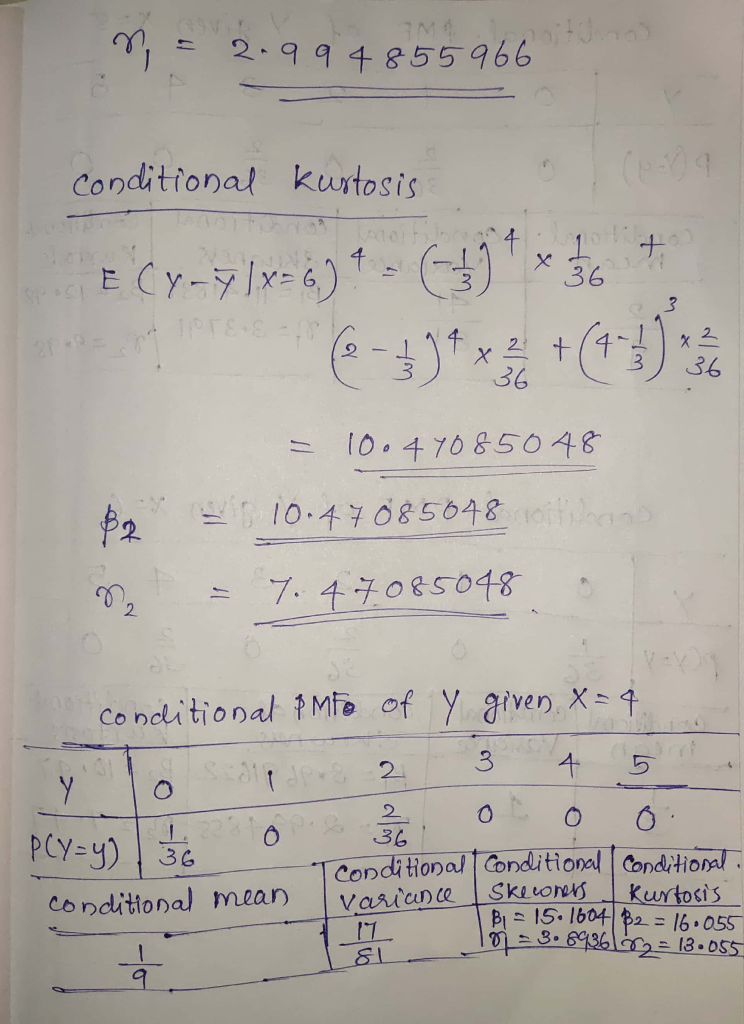 γ₁ = 2.994855966
Conditional Kurtosis
E(Y-ȳ|X=6)⁴ = (-1/3)⁴ × 1/36 +
(2-1/3)⁴ × 2/36 + (4-1/3)³ × 2/36
= 10.47085048
β2 = 10.47085048
γ2 = 7.47085048
conditional PMF of Y given X=4
Y 0 1 2 3 4 5
P(Y=y) 1/36 0 2/36 0 0 0
conditional mean Conditional variance Conditional Skewness Conditional Kurtosis
1/9 17/81 β1 = 15.1604 γ1 = 3.8936 β2 = 16.055 γ2 = 13.055